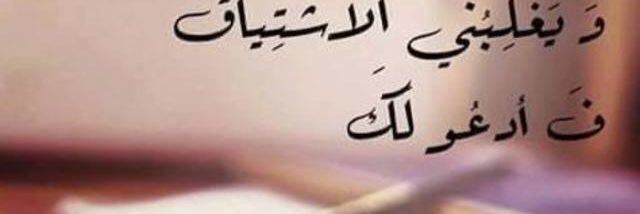 وَ يَغلِبُني الاشتِياق
فَ أدعُو لَكَ